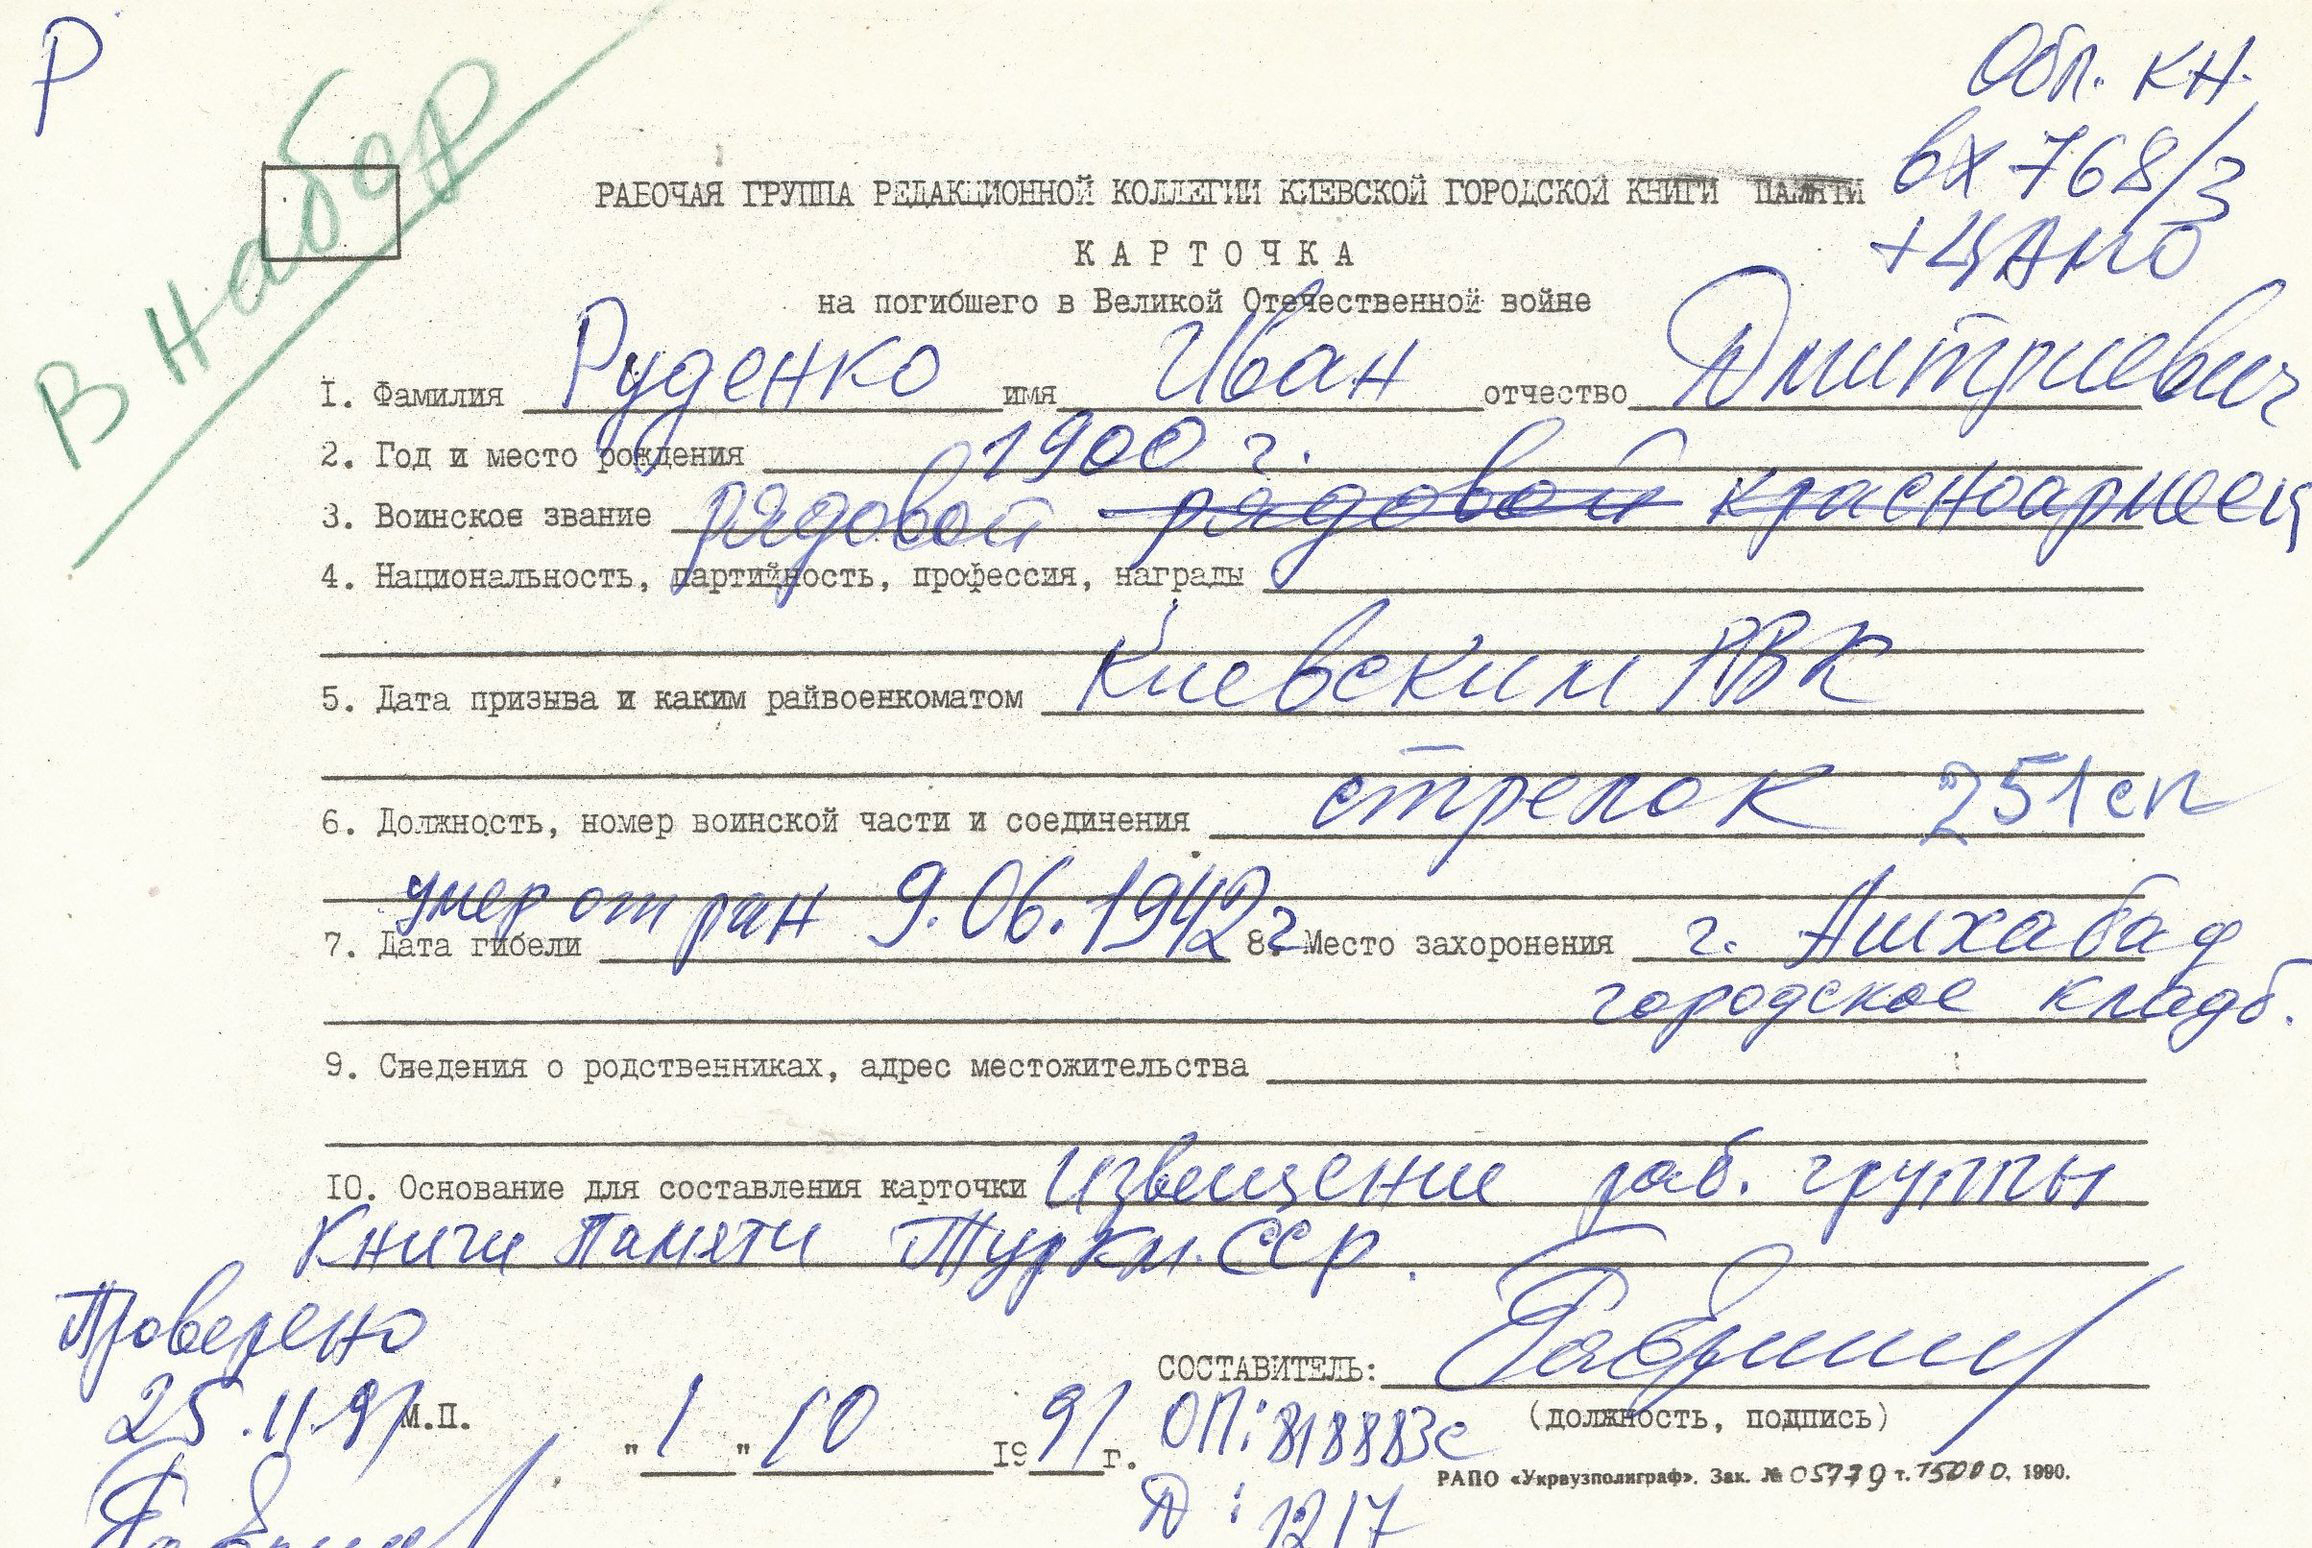 Р
Обл. кн.
вх 768/3
+ ЦАМО
В набор
РАБОЧАЯ ГРУППА РЕДАКЦИОННОЙ КОЛЛЕГИИ КИЕВСКОЙ ГОРОДСКОЙ КНИГИ ПАМЯТИ
КАРТОЧКА
на погибшего в Великой Отечественной войне
1. Фамилия Руденко имя Иван отчество Дмитриевич
2. Год и место рождения 1900 г.
3. Воинское звание рядовой рядовой красноармеец
4. Национальность, партийность, профессия, награды
5. Дата призыва и каким райвоенкоматом Киевским РВК
6. Должность, номер воинской части и соединения стрелок 251 сп
7. Дата гибели умер от ран 9.06.1942 г 8. Место захоронения г. Ашхабад
городское кладб.
9. Сведения о родственниках, адрес местожительства
10. Основание для составления карточки извещение раб. группы
Книги Памяти Туркм. ССР.
Проверено
25.11.91 М.П.
СОСТАВИТЕЛЬ:
(должность, подпись)
"1" 10 1991 г. ОП: 818883с
РАПО «Укрвузполиграф». Зак. № 05779 т. 15000. 1990.
Д: 1217